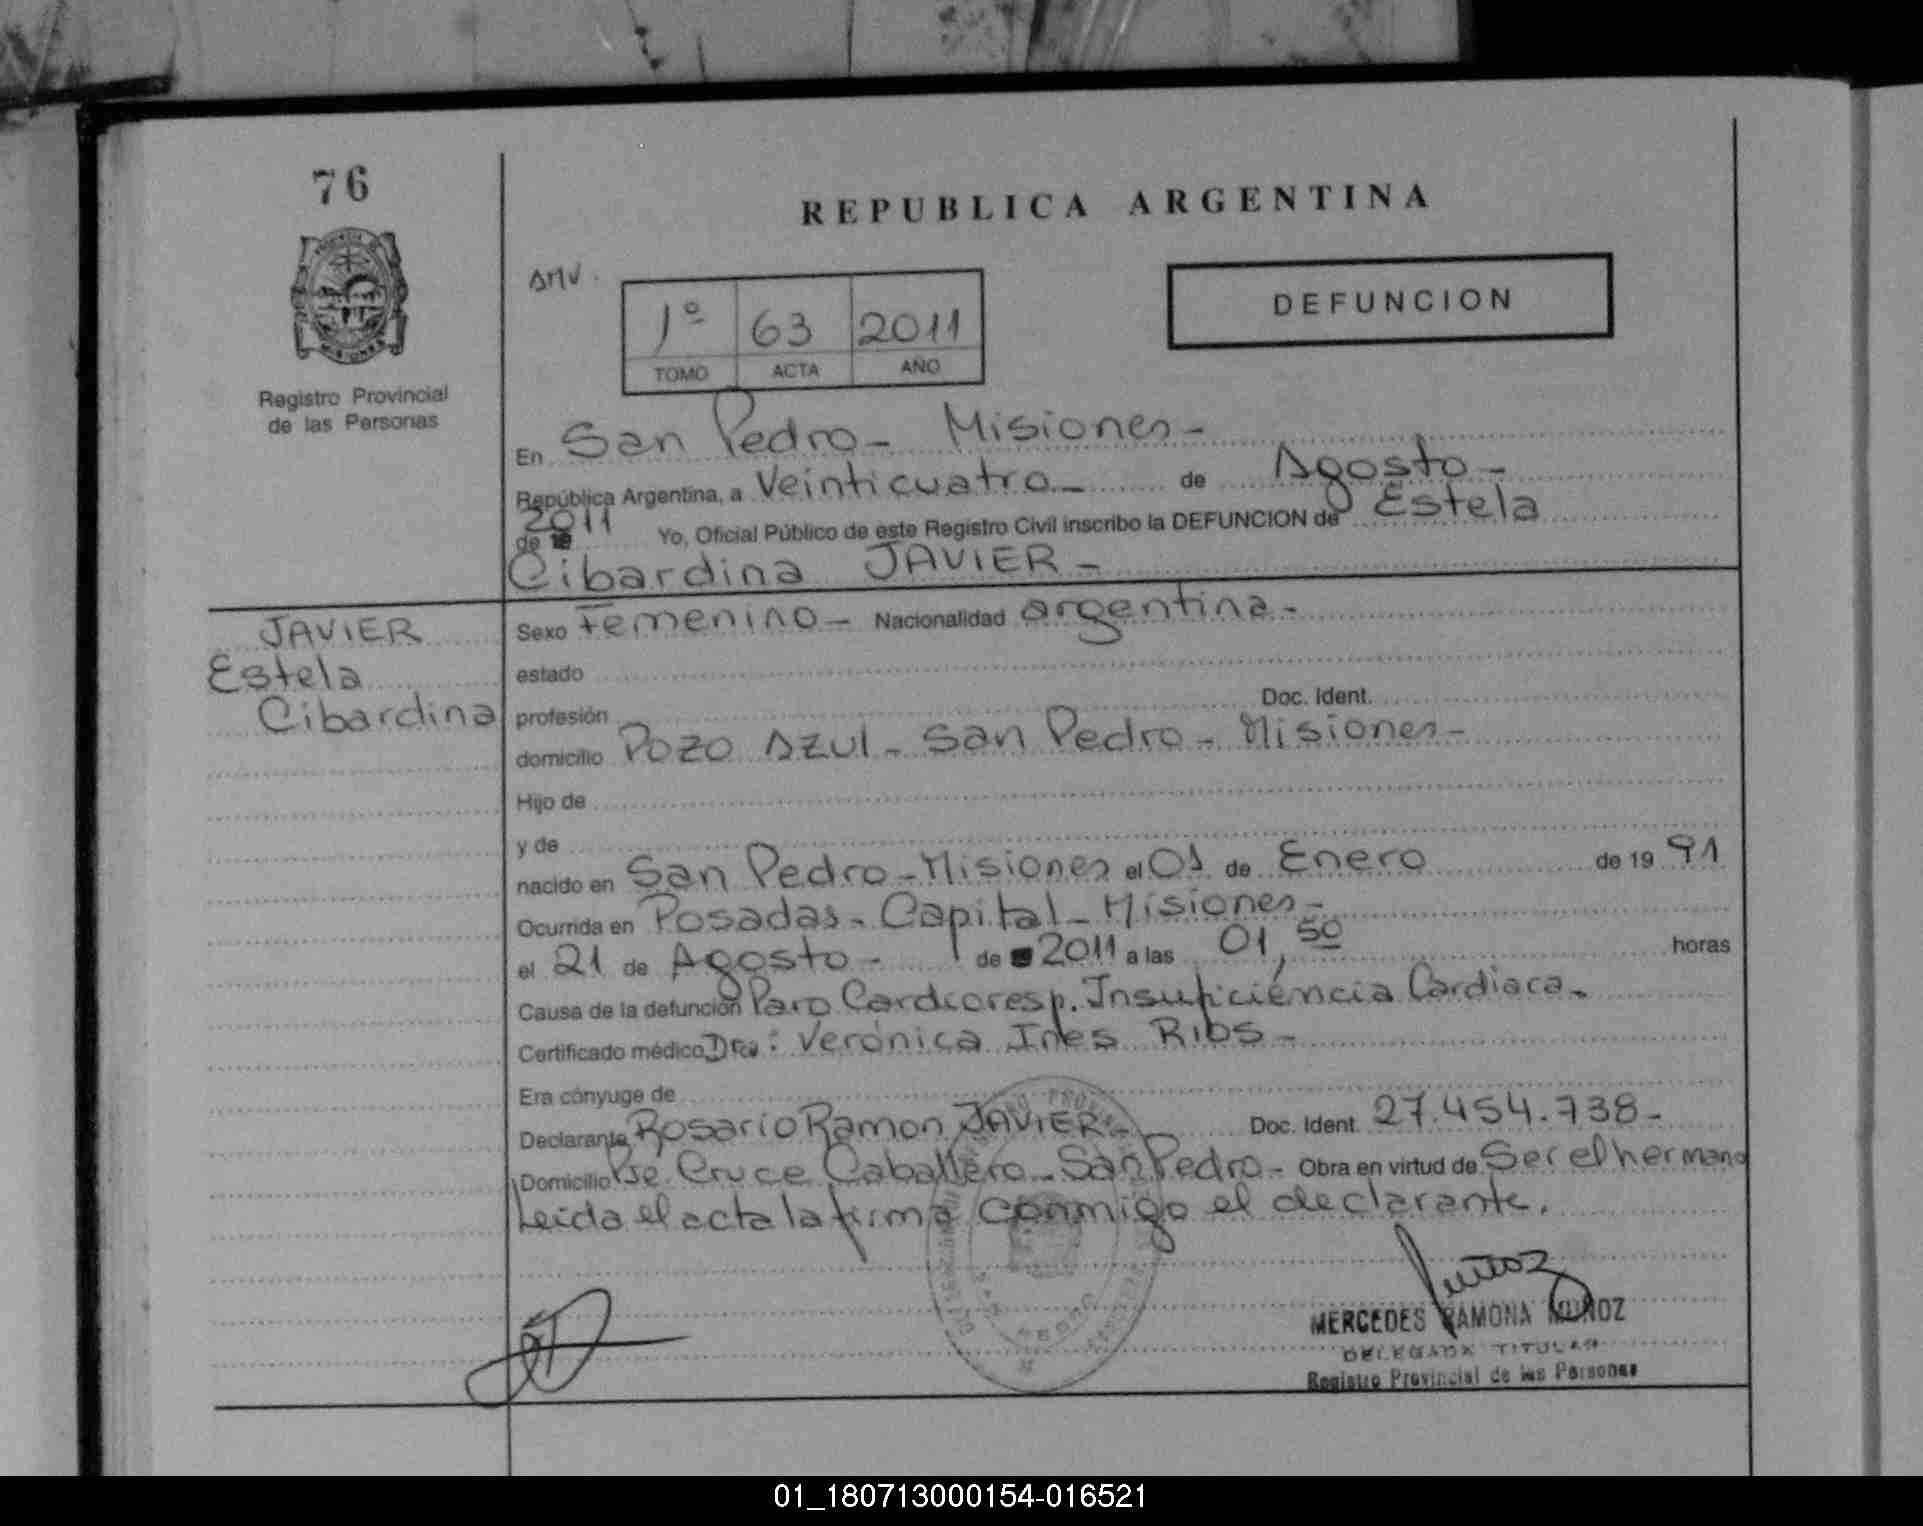 76
REPUBLICA ARGENTINA
DEFUNCION
1º 63 2011
TOMO ACTA AÑO
MISIONES
Registro Provincial
de las Personas
En San Pedro - Misiones -
República Argentina, a Veinticuatro - de Agosto -
2011
de 19 Yo, Oficial Público de este Registro Civil inscribo la DEFUNCION de Estela
Cibardina JAVIER -
JAVIER
Estela
Cibardina
Sexo Femenino - Nacionalidad argentina -
estado
profesión Doc. Ident.
domicilio Pozo Azul - San Pedro - Misiones -
Hijo de
y de
nacido en San Pedro - Misiones el 01 de Enero de 19 91
Ocurrida en Posadas - Capital - Misiones -
el 21 de Agosto - de 2011 a las 01,50 horas
Causa de la defunción Paro Cardioresp. Insuficiencia Cardiaca -
Certificado médico Dra: Verónica Ines Ribs -
Era cónyuge de
Declarante Rosario Ramon JAVIER - Doc. Ident. 27.454.738 -
Domicilio Pje. Cruce Caballero - San Pedro - Obra en virtud de Ser el hermano
Leida el acta la firma conmigo el declarante.
Muñoz
MERCEDES RAMONA MUÑOZ
DELEGADA TITULAR
Registro Provincial de las Personas
01_180713000154-016521